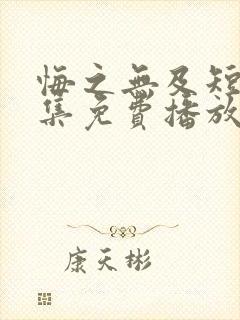 悔之無及短
集免費播放
康天彬